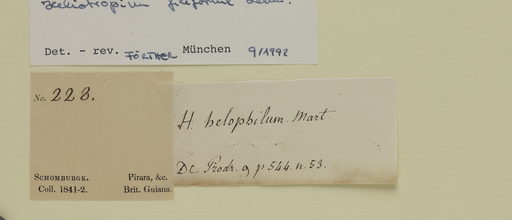 Heliotropium filiforme Lehm.
Det. - rev. FÖRTHER München 9/1992
No. 228.
SCHOMBURGK. Pirara, &c.
Coll. 1841-2. Brit. Guiana.
H. helophilum. Mart.
DC. Prodr. 9 p 544. n. 53.